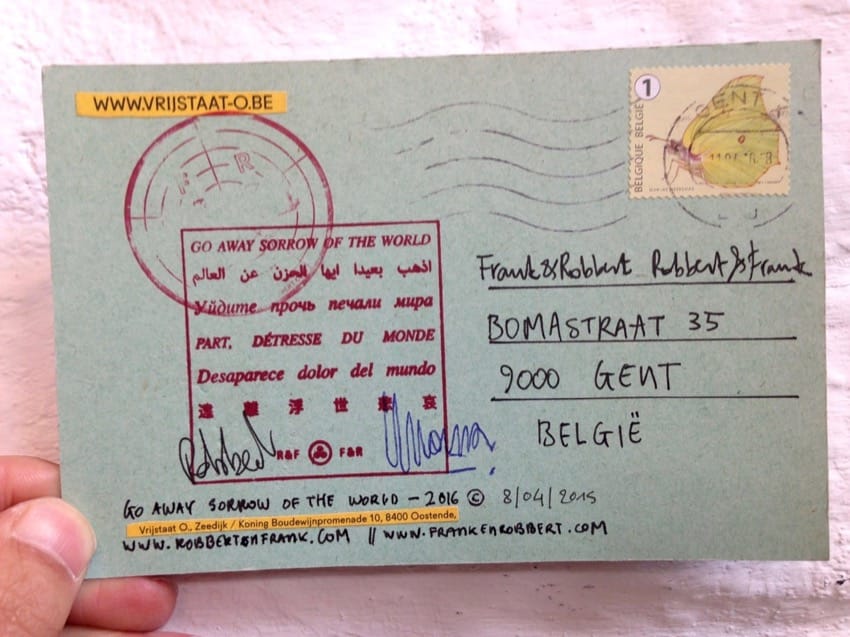 WWW.VRIJSTAAT-O.BE
1
BELGIQUE BELGIË
GENT
GO AWAY SORROW OF THE WORLD
اذهب بعيدا ايها الحزن عن العالم
Уйдите прочь печали мира
PART, DÉTRESSE DU MONDE
Desaparece dolor del mundo
遠 離 浮 世 悲 哀
Robbert
R&F F&R
Frank&Robbert Robbert&Frank
BOMASTRAAT 35
9000 GENT
BELGIË
GO AWAY SORROW OF THE WORLD – 2016 © 8/04/2015
Vrijstaat O., Zeedijk / Koning Boudewijnpromenade 10, 8400 Oostende,
WWW.ROBBERTENFRANK.COM // WWW.FRANKENROBBERT.COM